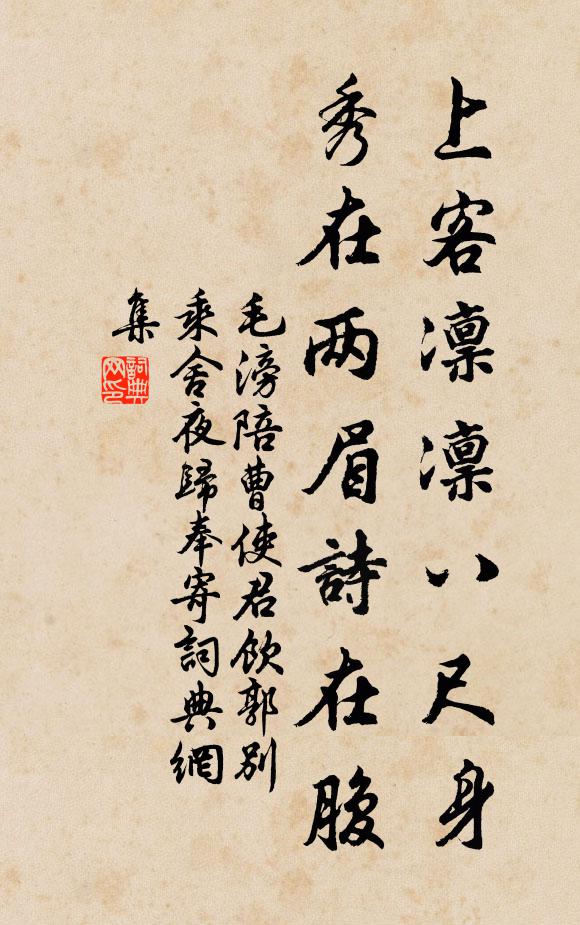 上客凛凛八尺身
秀在两眉詩在腹
毛滂陪曹使君飲郭別
乘舍夜歸奉寄詞典網
集
詞典网印